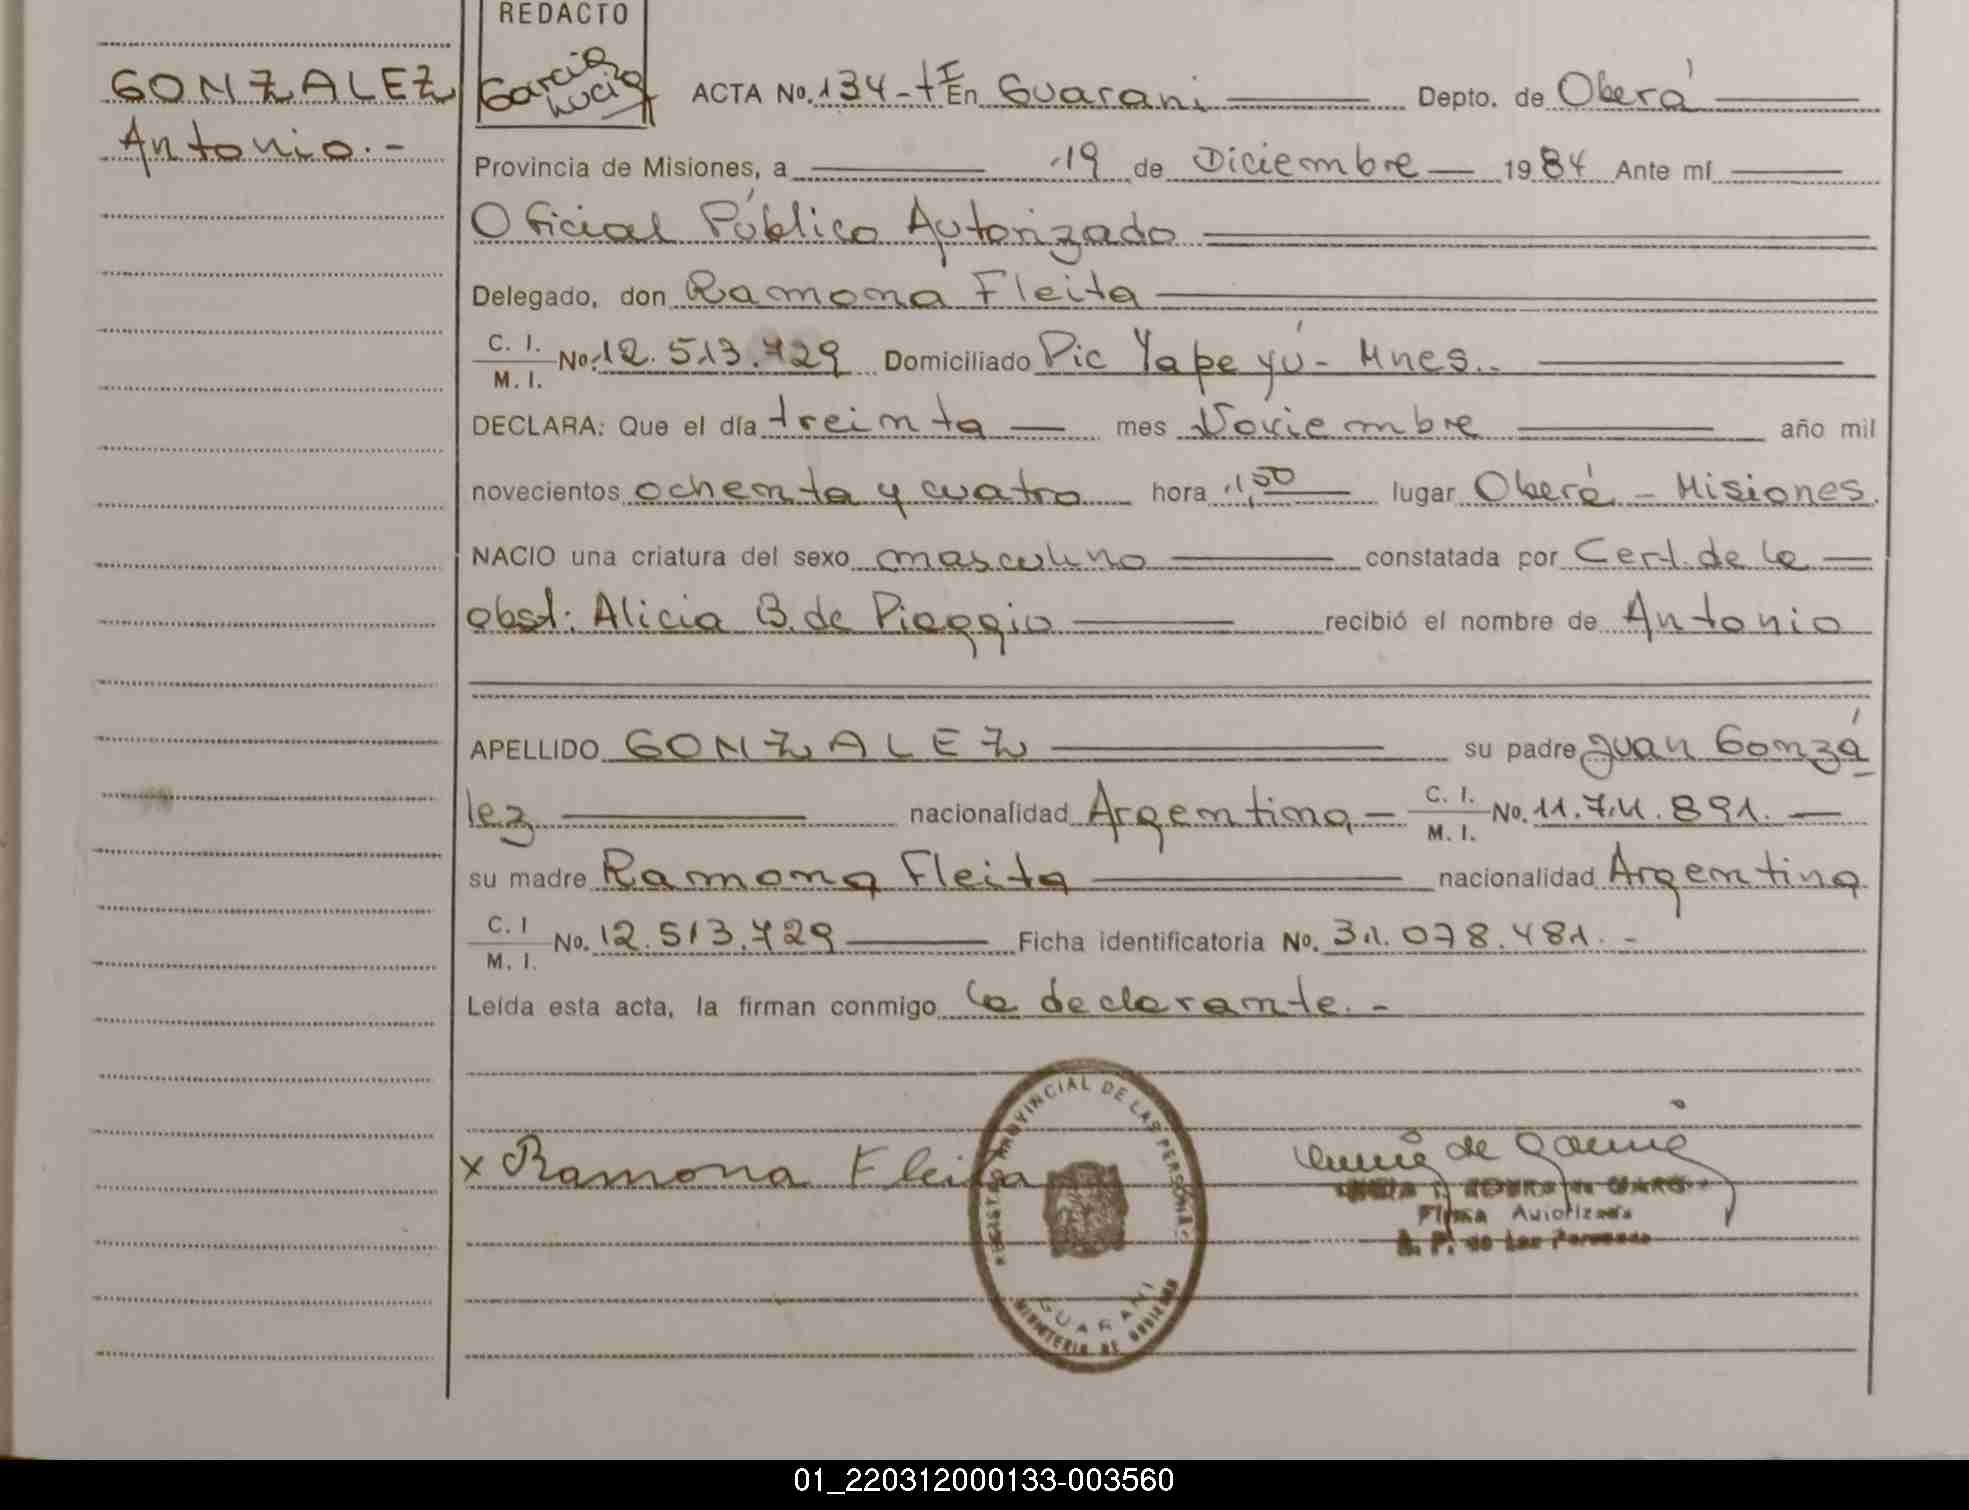 REDACTO
GONZALEZ
Antonio.-
García
Lucia
ACTA No. 134-tºI En Guarani Depto. de Oberá
Provincia de Misiones, a 19 de Diciembre 1984 Ante mí
Oficial Público Autorizado
Delegado, don Ramona Fleita
C. I.
M. I. No. 12.513.429 Domiciliado Pic Yapeyú - Mnes.-
DECLARA: Que el día treinta mes Noviembre año mil
novecientos ochenta y cuatro hora 1,50 lugar Oberá - Misiones.
NACIO una criatura del sexo masculino constatada por Cert. de la
obst: Alicia B. de Piaggio recibió el nombre de Antonio
APELLIDO GONZALEZ su padre Juan Gonzá
lez nacionalidad Argentina - C. I.
M. I. No. 11.711.891.-
su madre Ramona Fleita nacionalidad Argentina
C. I
M. I. No. 12.513.429 Ficha identificatoria No. 31.078.481.-
Leída esta acta, la firman conmigo la declarante.-
x Ramona Fleita
REGISTRO PROVINCIAL DE LAS PERSONAS
GUARANI
MINISTERIO DE GOBIERNO
Firma Autorizada
R. P. de las Personas
01_220312000133-003560